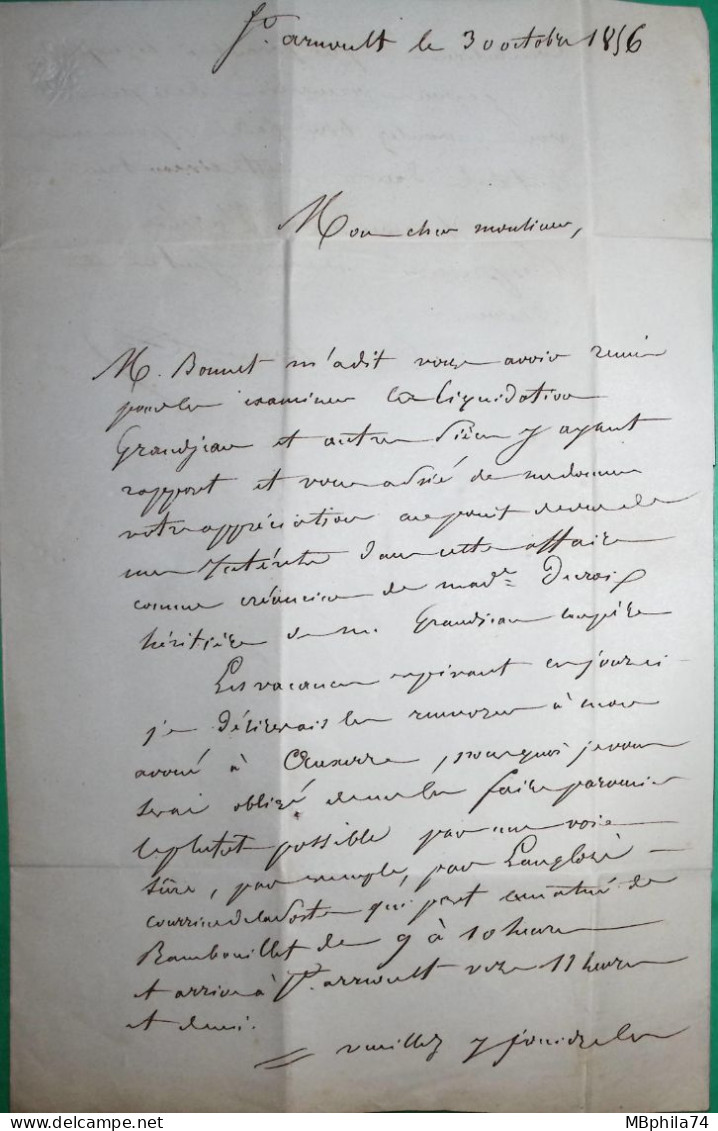 St. arnoult le 30 octobre 1856
Mon cher monsieur,
M. Bonnet m'a dit vous avoir remis
pour les examiner la liquidation
Grandjean et autres pièces y ayant
rapport et vous a prié de me donner
votre appréciation au point de vue de
mes intérêts dans cette affaire
comme créancier de made
héritière de M. Grandjean
Les vacances expirant ces jours-ci
je désirerais les renvoyer à mon
avoué à Auxerre, pourquoi je vous
serai obligé de me les faire parvenir
le plutot possible par une voie
sûre, par exemple, par Langlois
courrier de la Poste qui part ce matin de
Rambouillet de 9 à 10 heures
et arrive à St. arnoult vers 11 heures
et demi.
veuillez y joindre les
MBphila74